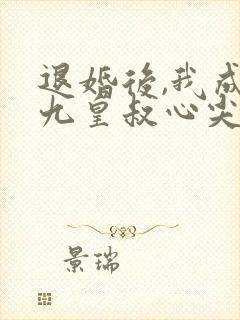 退婚後,我成
九皇叔心尖
景瑞